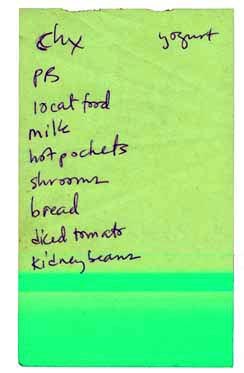 chx yogurt
PB
10 cat food
milk
hot pockets
shrooms
bread
diced tomato
kidney beans